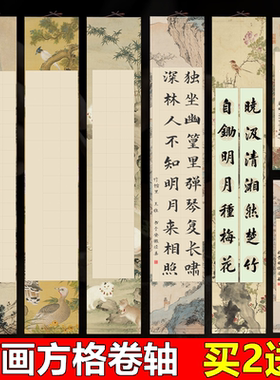 晓汲清湘然楚竹
自锄明月種梅花
独坐幽篁里弹琴复长啸
深林人不知明月来相照
画方格卷轴
买2送